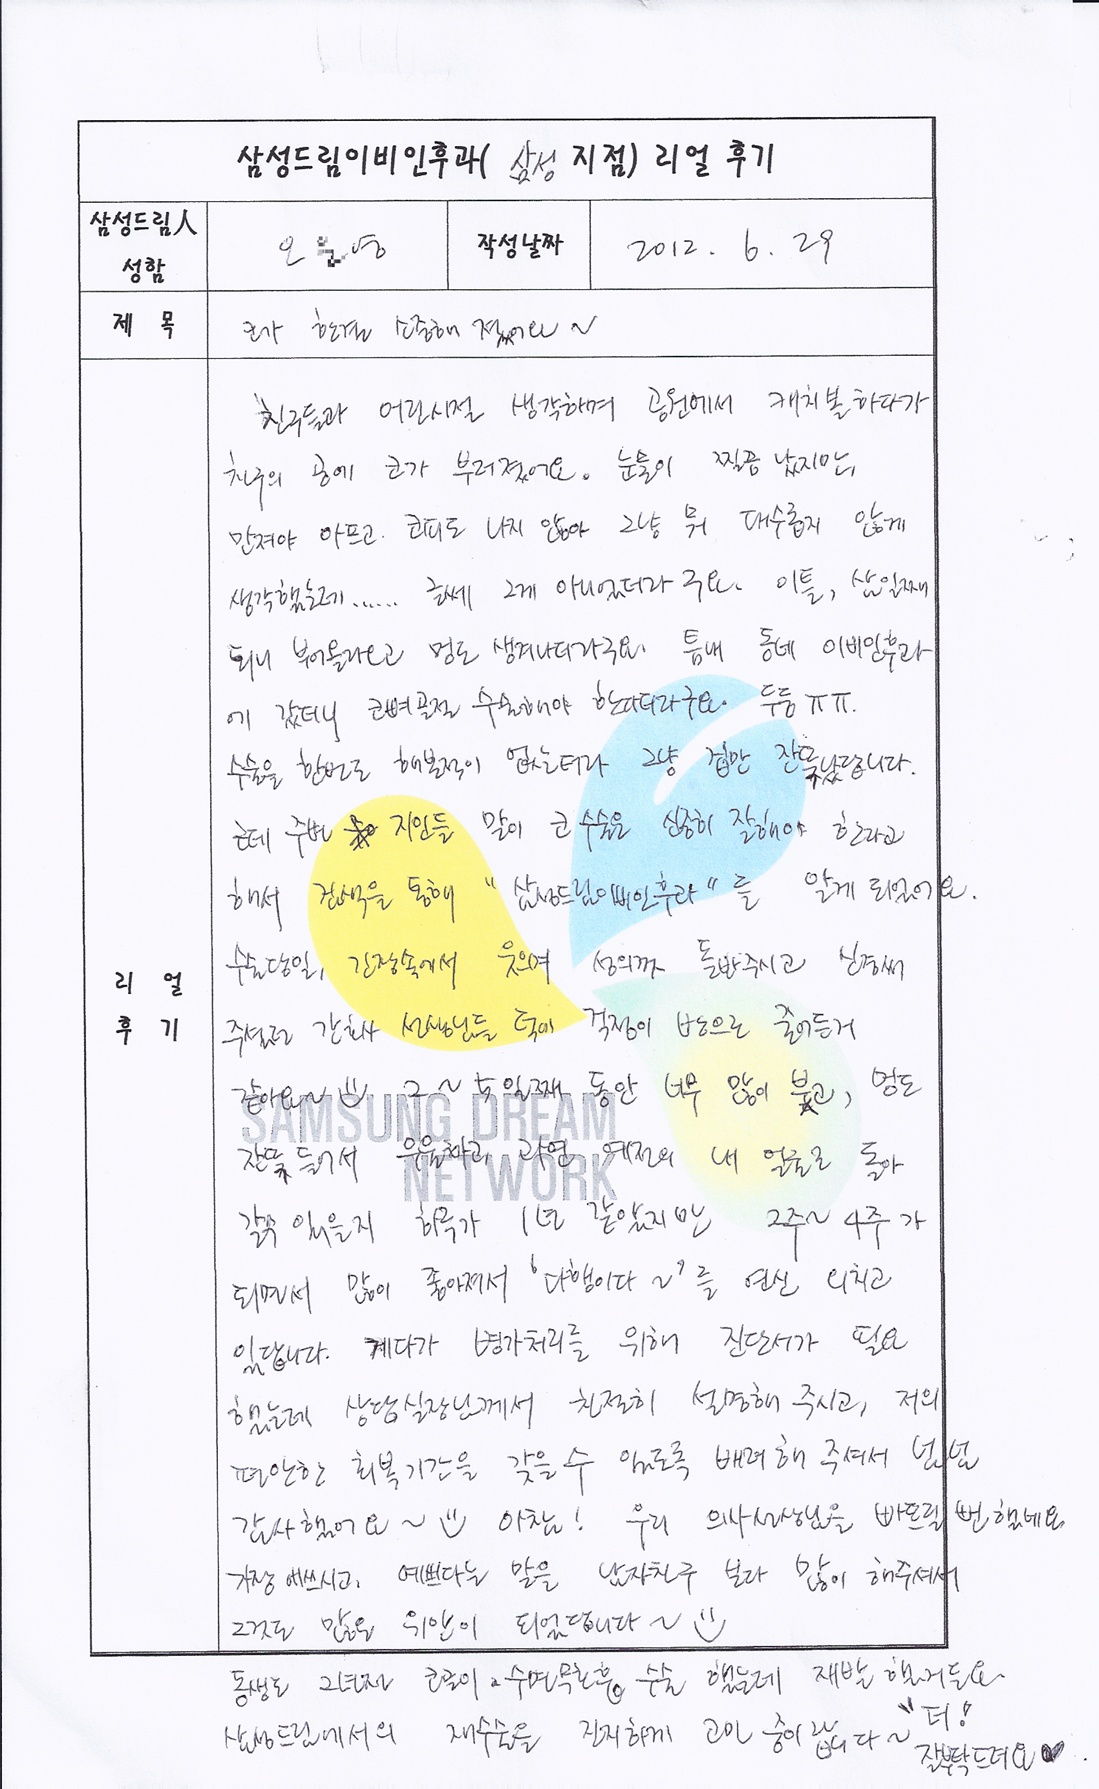 삼성드림이비인후과( 삼성 지점) 리얼 후기
삼성드림人
성함
오
영
작성날짜
2012. 6. 29
제 목
코가 한결 소중해 졌어요~
리 얼
후 기
친구들과 어린시절 생각하며 공원에서 캐치볼하다가
친구의 공에 코가 부러졌어요. 눈물이 찔끔 났지만,
만져야 아프고. 코피도 나지 않아 그냥 뭐 대수롭지 않게
생각했는데...... 글쎄 그게 아니었더라구요. 이틀, 삼일째
되니 부어올라오고 멍도 생겨나더라구요. 틈내 동네 이비인후과
에 갔더니 코뼈골절 수술해야 한다더라구요. 두둥ㅠㅠ.
수술을 한번도 해본적이 없는터라 그냥 겁만 잔뜩났답니다.
근데 주변 지인들 말이 코 수술은 신중히 잘해야 한다고
해서 검색을 통해 "삼성드림이비인후과"를 알게 되었어요.
수술당일, 긴장속에서 웃으며 성의껏 돌봐주시고 신경써
주셨던 간호사 선생님들 덕에 걱정이 반으로 줄어든거
같아요~ 2~5일째 동안 너무 많이 붓고, 멍도
SAMSUNG DREAM
잔뜩 들어서 우울하고 과연 예전의 내 얼굴로 돌아
NETWORK
갈수 있을지 하루가 1년 같았지만 2주~4주가
되면서 많이 좋아져서 '다행이다~'를 연신 외치고
있답니다. 게다가 병가처리를 위해 진단서가 필요
했는데 상담실장님께서 친절히 설명해 주시고, 저의
편안한 회복기간을 갖을수 있도록 배려해 주셔서 넘넘
감사했어요~ 아참! 우리 의사선생님을 빠뜨릴 뻔 했네요
가장 애쓰시고, 예쁘다는 말을 남자친구 보다 많이 해주셔서
그것도 많은 위안이 되었답니다~
동생도 2년전 코골이, 수면무호흡 수술 했는데 재발 했거든요
삼성드림에서의 재수술을 진지하게 고민 중이랍니다~
더!
잘부탁드려요♥.